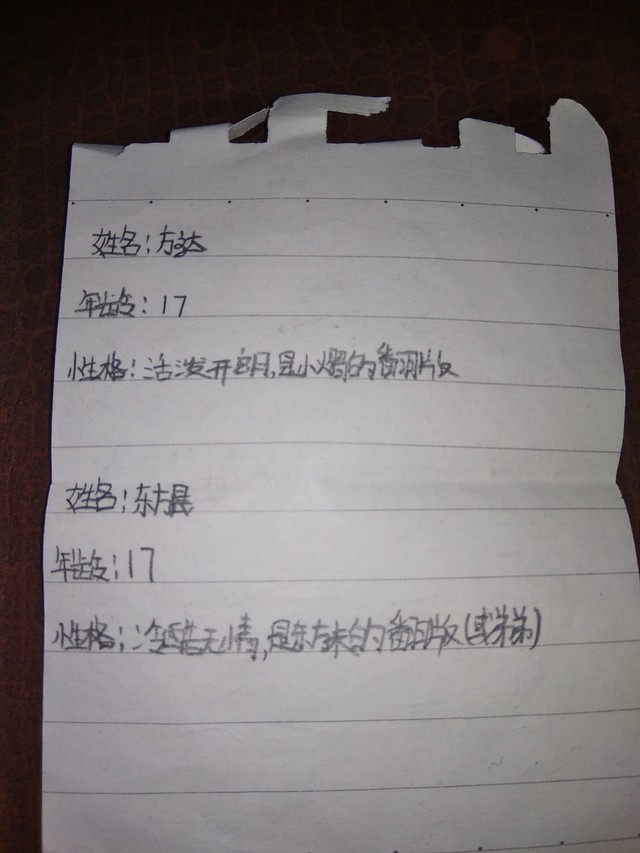 姓名:方达
年龄:17
性格:活泼开朗,是小熠的翻版
姓名:东方晨
年龄:17
性格:冷酷无情,是东方末的翻版(或弟弟)